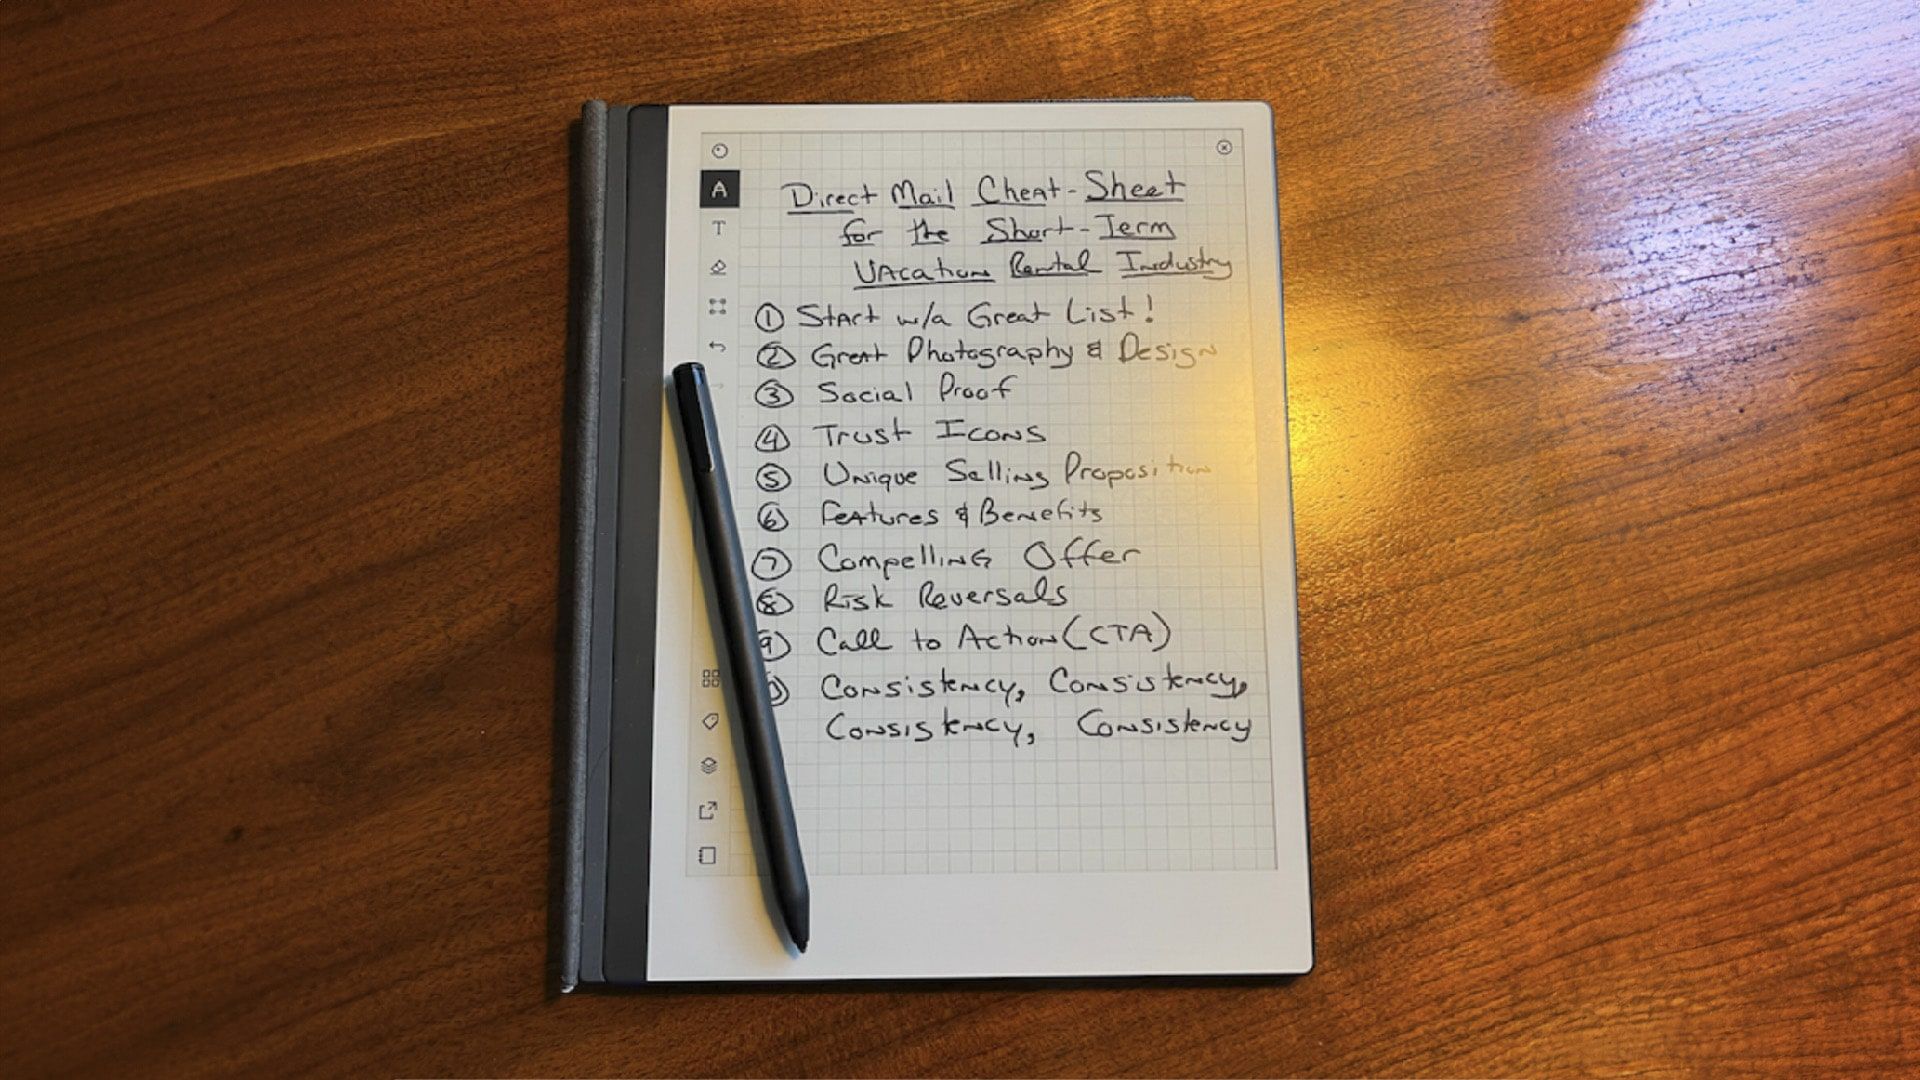 Direct Mail Cheat-Sheet
for the Short-Term
Vacation Rental Industry
① Start w/a Great List!
② Great Photography & Design
③ Social Proof
④ Trust Icons
⑤ Unique Selling Proposition
⑥ Features & Benefits
⑦ Compelling Offer
⑧ Risk Reversals
⑨ Call to Action (CTA)
Consistency, Consistency,
Consistency, Consistency